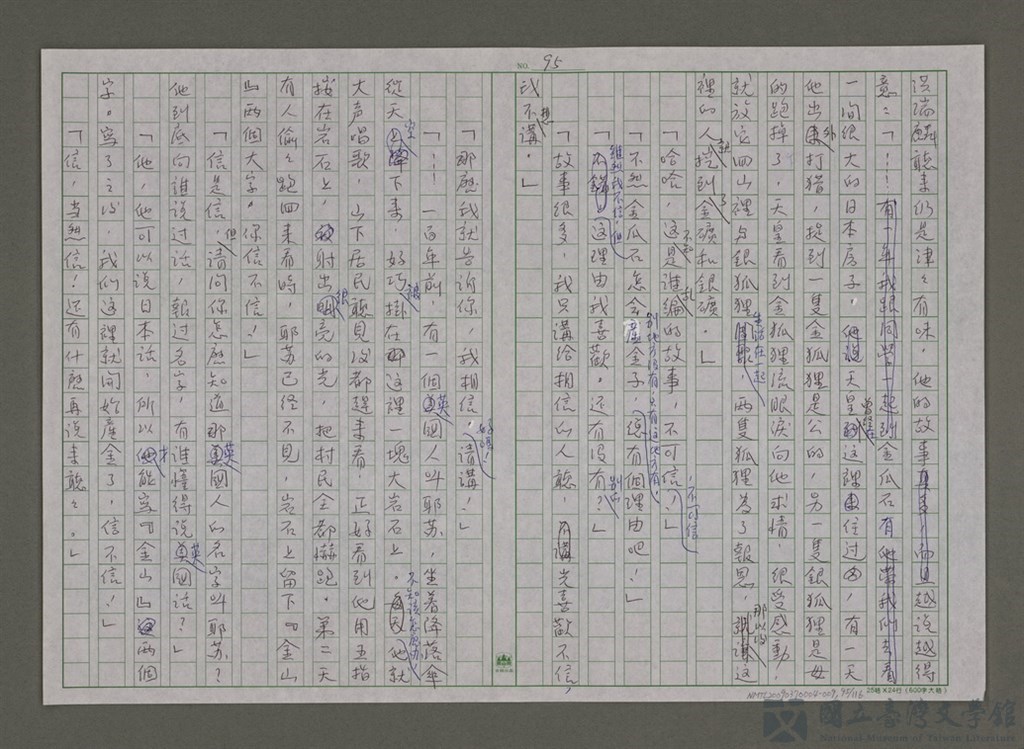 NO. 95
洪瑞麟聽來仍是津々有味，他的故事真多，而且越說越得
意：「！！！有一年我跟同學一起到金瓜石有他帶我們去看
一間很大的日本房子，他說天皇曾經在這裡住過的，有一天
他出外打獵，捉到一隻金狐狸是公的，另一隻銀狐狸是母
的跑掉了，天皇看到金狐狸流眼淚向他求情，很受感動，
就放它回山裡与銀狐狸生活在一起，兩隻狐狸為了報恩，那以後這
裡的人挖到了金礦和銀礦。」
「哈哈，這是誰編的故事，不可信？」
「不然金瓜石怎会產金子，別地方沒有只有這地方有，總有個理由吧！」
「雖然我不信，但這理由我喜歡。还有沒有別的？」
「故事很多，我只講給相信的人聽，光喜歡不信，
我不講。」
「那麼我就告訴你，我相信，請講！」
「！！！一百年前，有一個英國人叫耶苏，坐着降落傘
從天空下來，好巧被掛在這裡一塊大岩石上。不知該怎麼办，他就
大声唱歌，山下居民聽見後都趕來看，正好看到他用五指
按在岩石上，射出很亮的光，把村民全都嚇跑。第二天
有人偷々跑回來看時，耶苏已经不見，岩石上留下『金山
』两個大字。你信不信！」
「信是信，但請问你怎麼知道那英國人的名字叫耶苏？
他到底向誰說过話，報过名字，有誰懂得說英國話？」
「他，他可以說日本話，所以才能寫『金山』两個
字。寫了之後，我們这裡就開始產金了，信不信！」
「信，当然信！还有什麼再說来聽々。」
25格×24行（600字大稿）
NMTL20090370004-009, 95/116
國立臺灣文學館
National Museum of Taiwan Literature